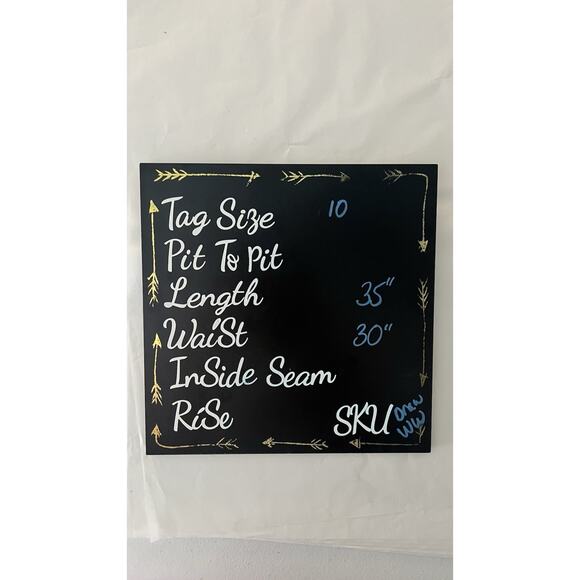 Tag Size 10
Pit To Pit
Length 35"
WaiSt 30"
InSide Seam
RiSe SKU
WW